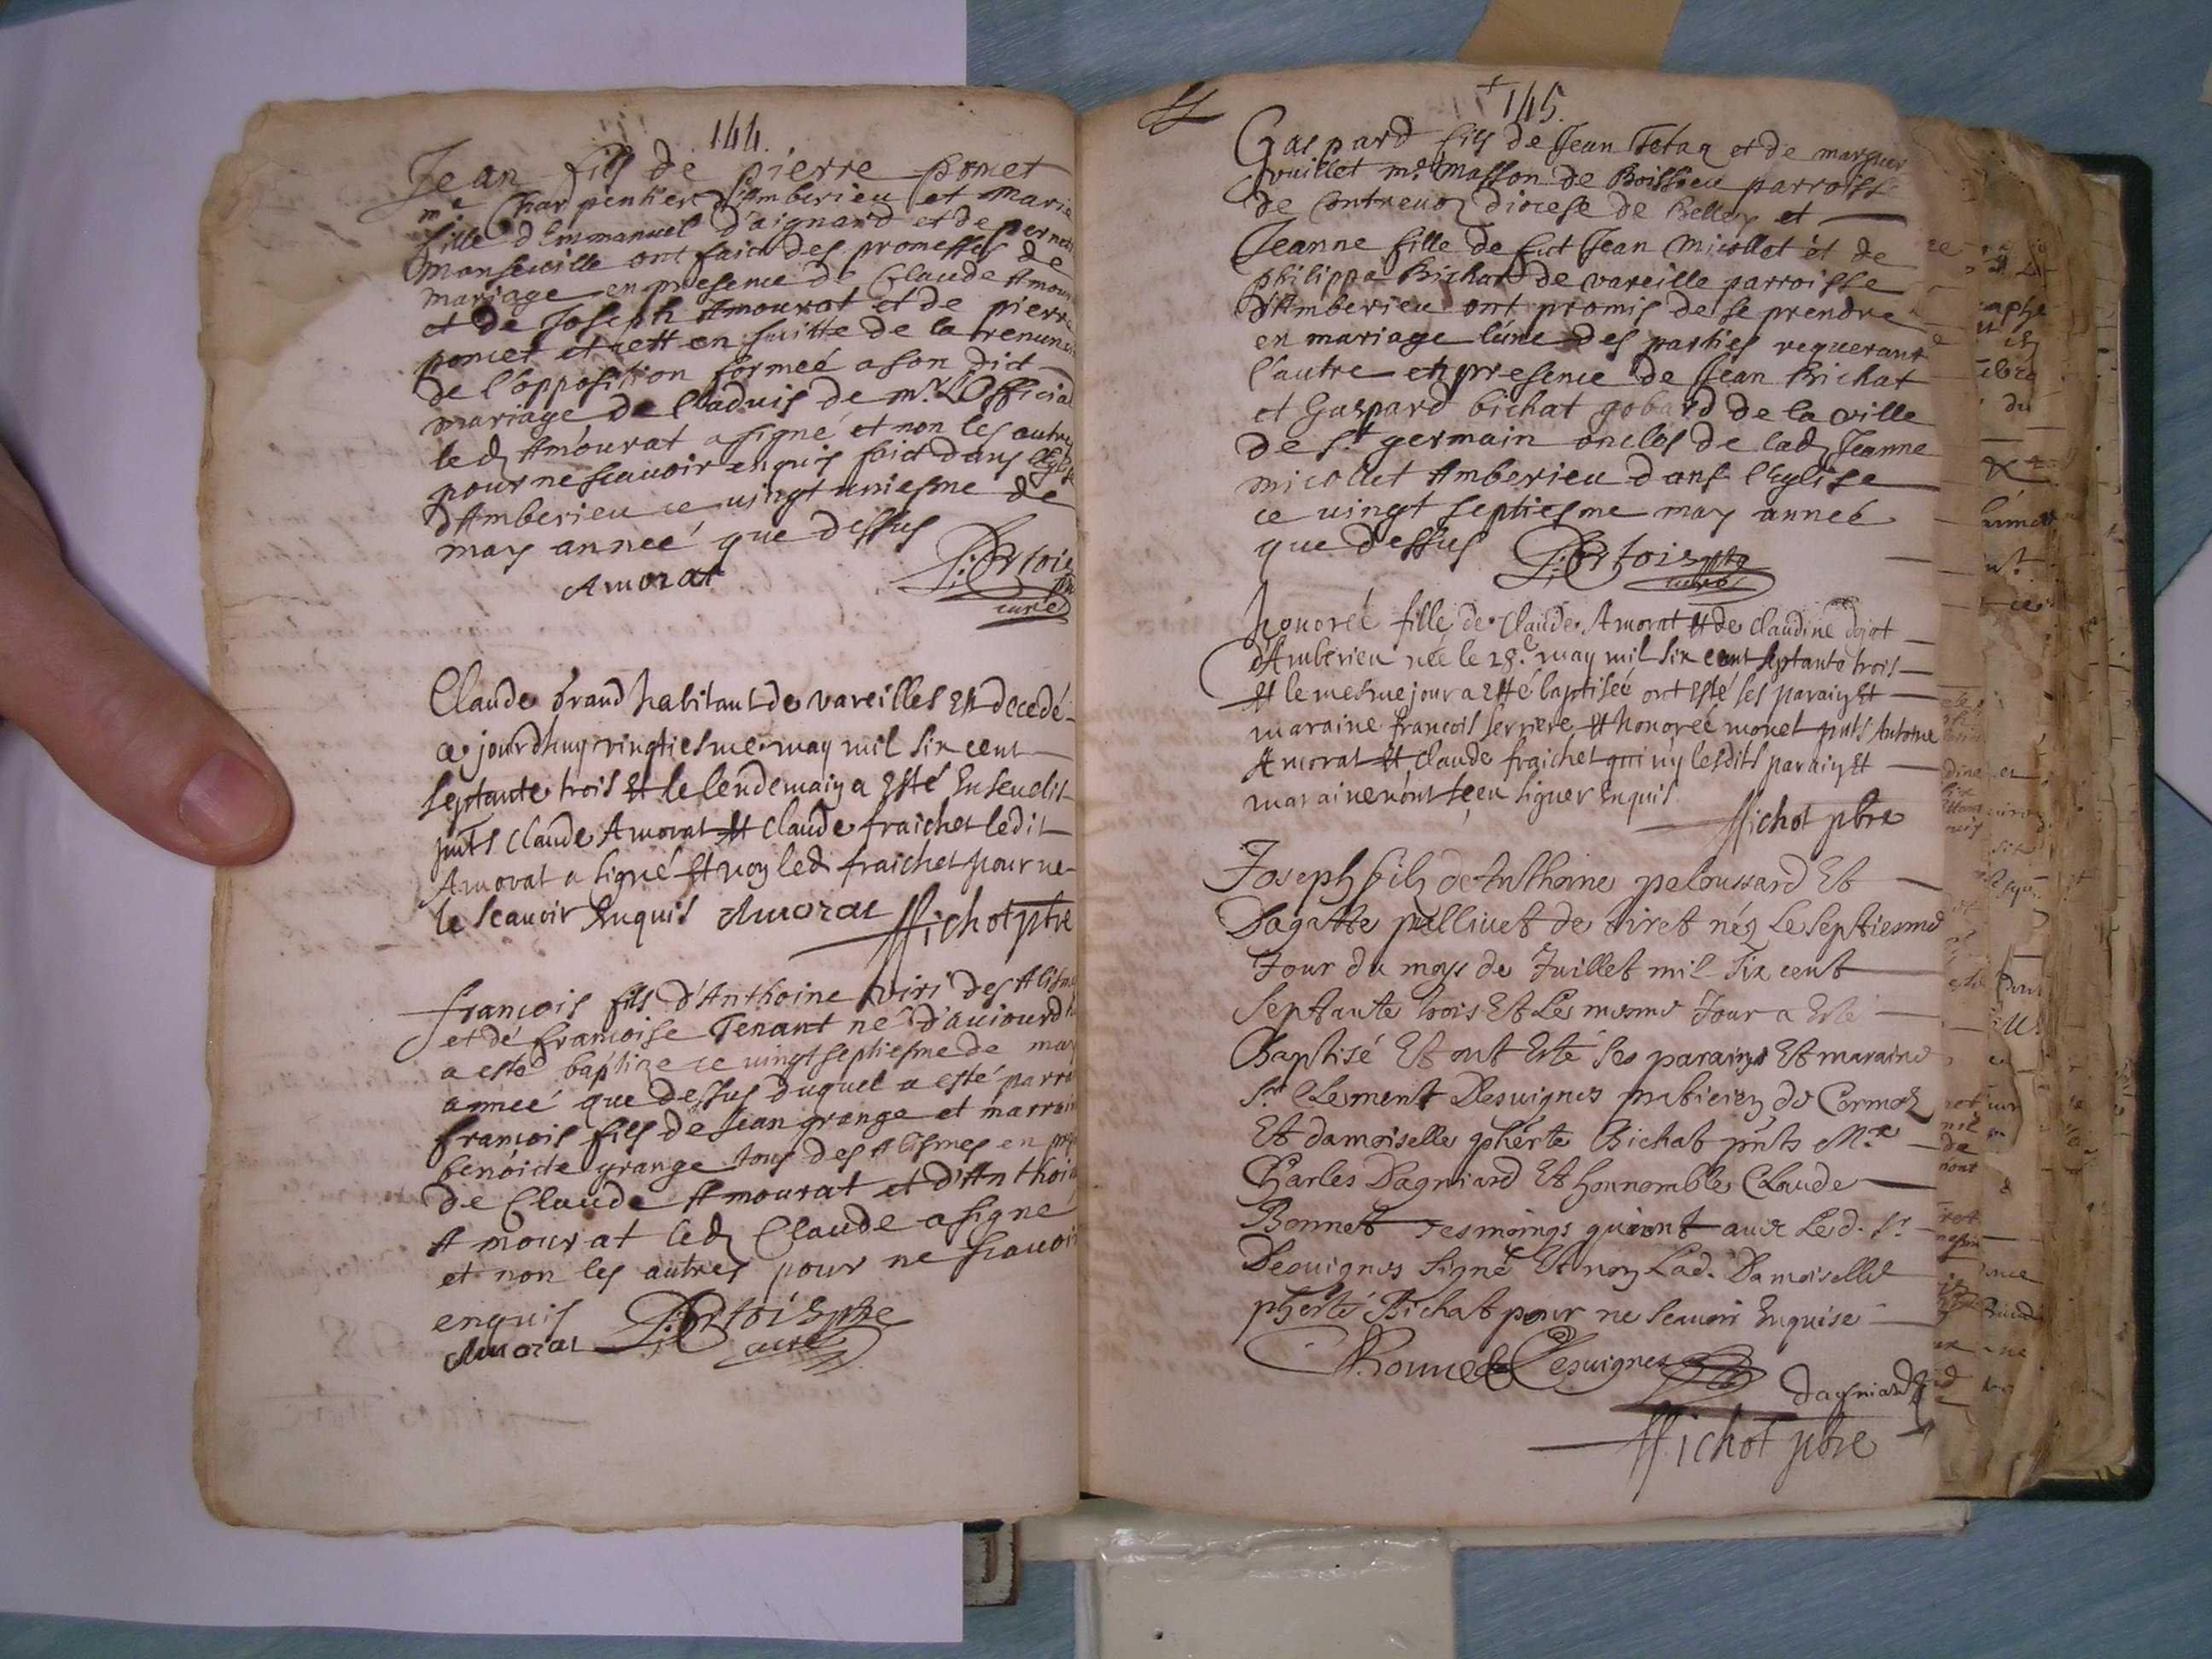 144.
Jean fils de pierre poncet
me Charpentier d'Amberieu et Marie
fille d'Emmanuel d'aignard et de pernet
Monseville ont faict des promesses de
mariage en presence de Claude Amour
et de Joseph Amourat et de pierre
poncet et cett en suitte de la renun
de l'opposition formeé a son dict
mariage de l'aduis de mr. L'Official
led Amourat a signé et non les autres
pour ne scauoir enquis faict dans l'Eglise
d'Amberieu ce vingt uniesme de
may anneé que dessus
Amorat
curé
Claude brand habitant de vareilles Est decedé
ce jourdhuy vingtiesme may mil six cent
septante trois Et le lendemain a Esté Enseuelit
pnts Claude Amorat Et Claude fraichet ledit
Amorat a signé Et non led fraichet pour ne
le scauoir Enquis Amorat Michot ptre
francois fils d'Anthoine viri des Alismes
et dé francoise Tenant né d'auiourd
a esté baptize ce vingt septiesme de may
anneé que dessus duquel a esté parra
francois fils de Jean grange et marrain
benoicte grange tous des Alismes en
de Claude Amourat et d'Anthoine
Amourat led Claude a signé
et non les autres pour ne scauoir
enquis
Amorat curé
145.
Gaspard fils de Jean Tetaq et de
vuillet mr. Masson de Boissieu parroisse
de Contreuoz diocese de belley et
Jeanne fille de fut Jean Micollet et de
philippa Bichat de vareille parroisse
d'Amberieu ont promis de se prendre
en mariage l'une des parties requerant
l'autre en presence de Jean Bichat
et Gaspard bichat gobard de la ville
de st germain oncles de lad Jeanne
micollet Amberieu dans l'Eglise
ce vingt septiesme may anneé
que dessus
curé
honoreé fille de Claude Amorat Et de Claudine dojat
d'Amberieu née le 28.e may mil six cent septante trois
Et le mesme jour a Esté baptiseé ont Esté ses parain Et
maraine francois ferriere Et honoreé monet pnts Antoine
Amorat Et Claude fraichet qui ny lesdits parain Et
maraine n'ont sceu signer Enquis
Michot ptre
Joseph filz de Anthoine peloussard Et
Dagatte pellivet de tiret néz Le septiesme
Jour du moys de Juillet mil six cent
septante trois Et Le mesme Jour a Esté
Baptisé Et ont Esté ses parains Et maraine
Sr Clement Desuignes praticien de Cormoz
Et damoiselle Bichat pnts Mre
Charles Dagniard Et honnorable Claude
Bonnet Tesmoings qui ont auec Led. Sr
Desuignes signé Et non Lad. Damoiselle
Bichat pour ne scauoir Enquise
Bonnet Desuignes
dagniard
Michot ptre